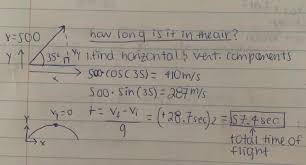 V=500
how long is it in the air?
Y
35°
Vy
x
1. find horizontal & vert. components
500 · cos(35) = 410 m/s
500 · sin(35) = 287 m/s
V₁=0
t = V₂ - V₁ / g = (+28.7 sec)2 = 57.4 sec
Y
x
total time of flight